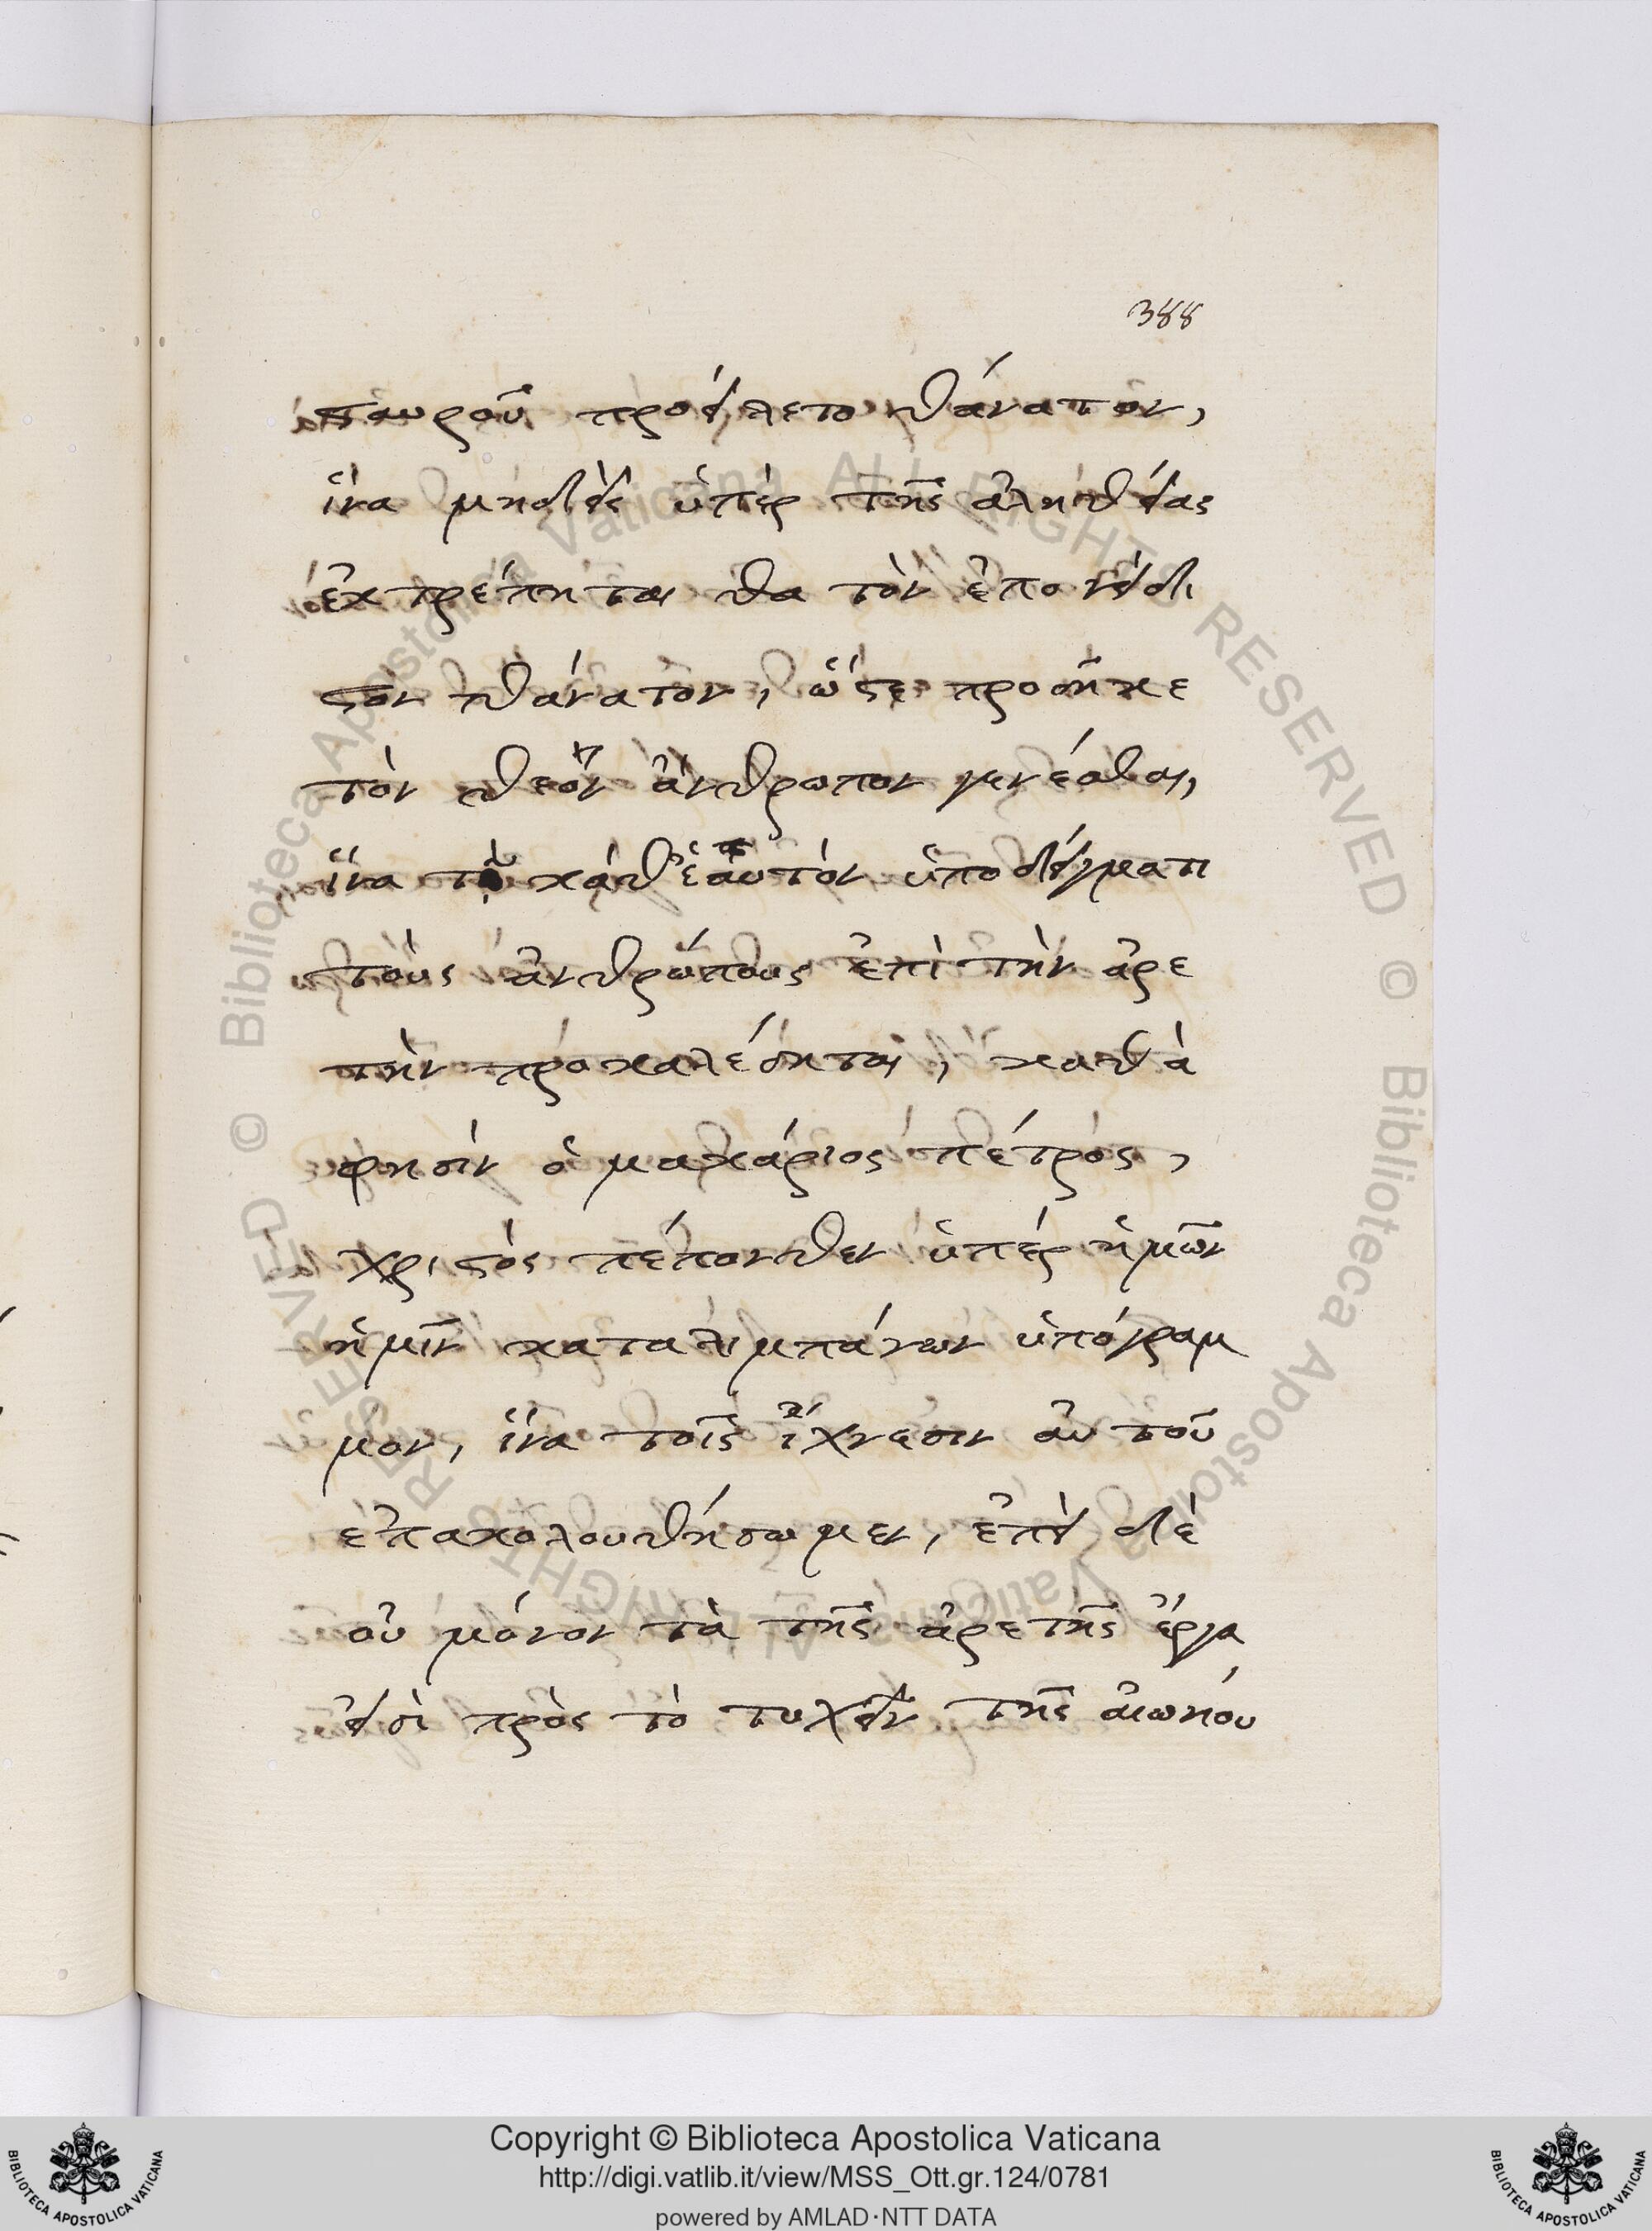 388
σταυροῦ προείλετο θάνατον,
ἵνα μηδεὶς ὑπὲρ τῆς ἀληθείας
ἐκτρέπηται θα τὸν ἐπονείδι
στον θάνατον, ὥστε προσῆκε
τὸν θεὸν ἄνθρωπον γενέσθαι,
ἵνα τῷ καθ' ἑαυτὸν ὑποδείγματι
τοὺς ἀνθρώπους ἐπὶ τὴν ἀρε
τὴν προκαλέσηται, καθὰ
φησὶν ὁ μακάριος πέτρος,
χριστὸς πέπονθεν ὑπὲρ ἡμῶν
ἡμῖν καταλιμπάνων ὑπόγραμ
μον, ἵνα τοῖς ἴχνεσιν αὐτοῦ
ἐπακολουθήσωμεν, ἐπεὶ δὲ
οὐ μόνον τὰ τῆς ἀρετῆς ἔργα
εἰσὶ πρὸς τὸ τυχεῖν τῆς αἰωνίου
Copyright © Biblioteca Apostolica Vaticana
http://digi.vatlib.it/view/MSS_Ott.gr.124/0781
powered by AMLAD·NTT DATA
BIBLIOTECA APOSTOLICA VATICANA
BIBLIOTECA APOSTOLICA VATICANA
© Biblioteca Apostolica Vaticana ALL RIGHTS RESERVED
© Biblioteca Apostolica Vaticana ALL RIGHTS RESERVED